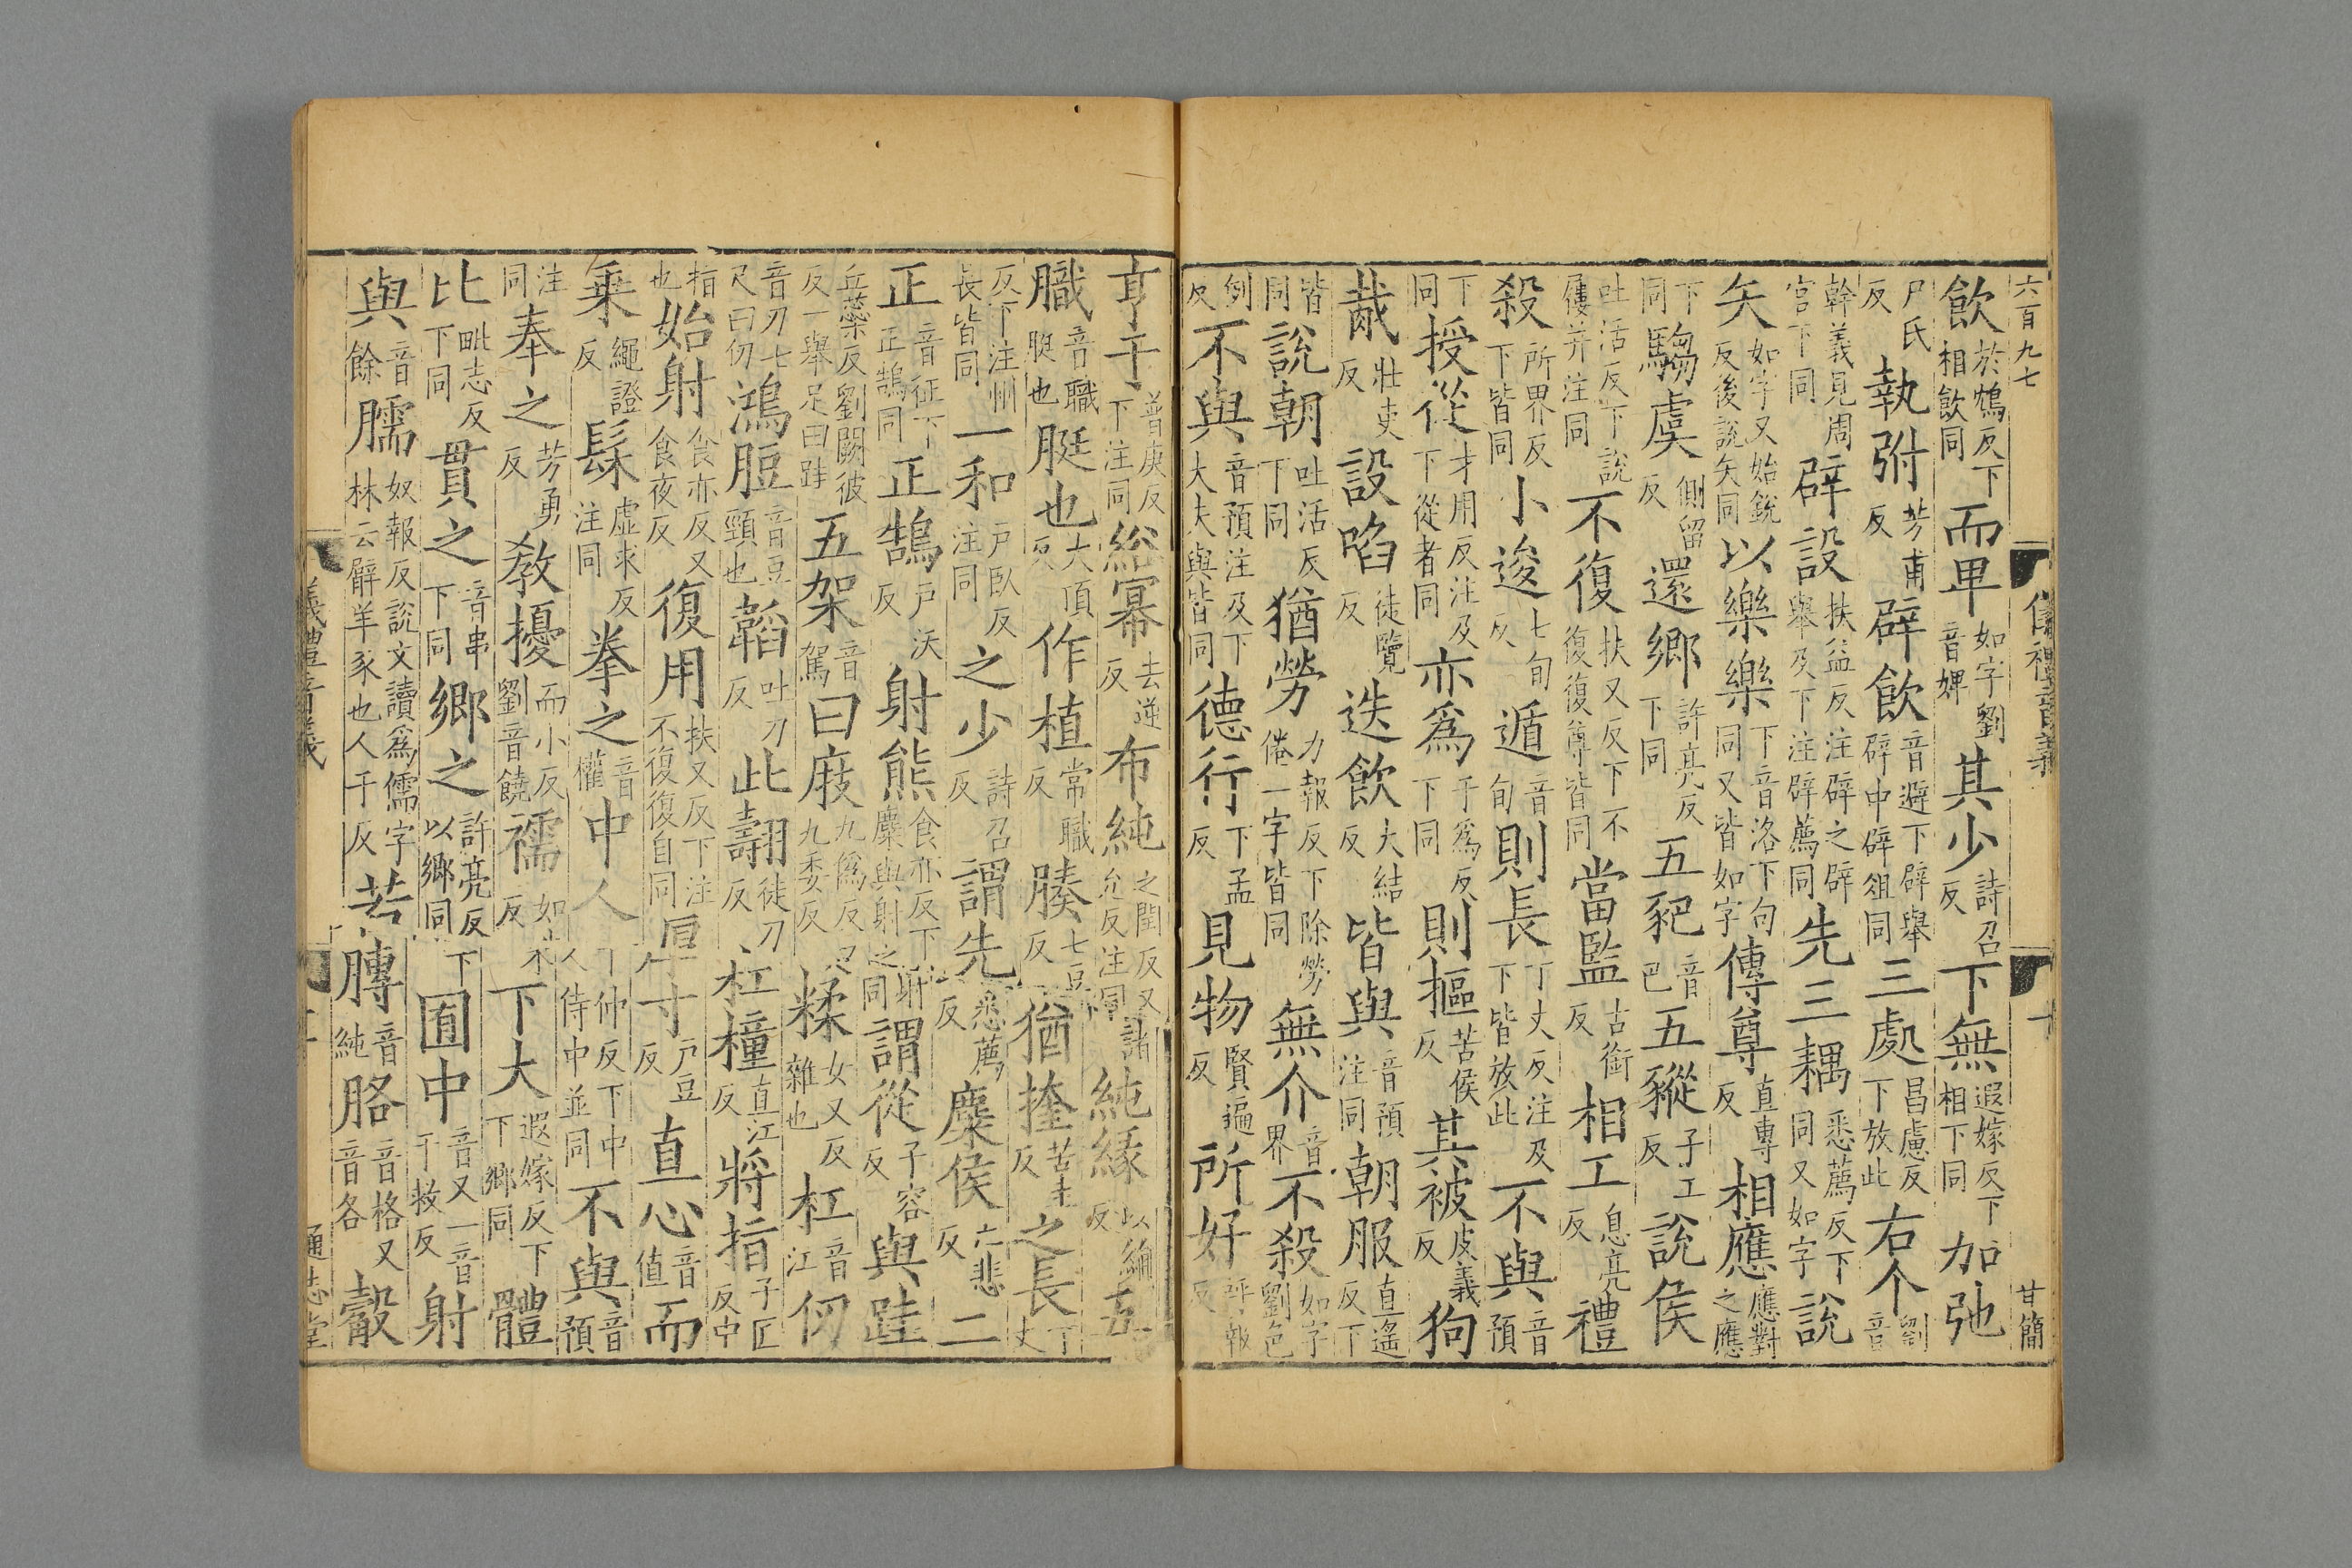 六百九七 儀禮音義 十 甘簡
飲於鴆反下相飲同而卑如字劉音婢其少詩召反下無遐嫁反下相下同加弛
尸氏反執弣芳甫反辟飲音避下辟舉辟中辟俎同三處昌慮反下放此右个劉音
幹義見周宮下同辟設扶益反注辟之辟舉及下注辟薦同先三耦悉薦反下同又如字說
矢如字又始銳反後說矢同以樂樂下音洛下句同又皆如字傳尊直專反相應應對之應
下同騶虞側留反還鄉許亮反下同五豝音巴五豵子工反說侯
吐活反下說屨并注同不復扶又反下不復復尊皆同當監古銜反相工息亮反禮
殺所界反下皆同小逡七旬反遁音旬則長丁丈反注及下皆放此不與音預
下同授從才用反注及下從者同亦爲于爲反下同則摳苦侯反其被皮義反狗
胾壯吏反設啗徒覽反迭飲大結反皆與音預注同朝服直遙反下
皆同說朝吐活反下同猶勞力報反下除勞倦一字皆同無介音界不殺如字劉色
例反不與音預注及下大夫與皆同德行下孟反見物賢遍反所好呼報反
亨于普庚反下注同綌冪去逆反布純之閏反又諸允反注同純緣以絹反五
膱音職脡也脡也大頂反作植常職反腠七豆反猶挳苦圭反之長丁丈
反下注州長皆同一和戶臥反注同之少詩召反謂先悉薦反麋侯亡悲反二
正音征下正鵠同正鵠戶沃反射熊食亦反下麋與射之射同謂從子容反與跬
丘蘂反劉闕彼反一舉足曰跬五架音駕曰庪九僞反又九委反糅女又反雜也杠音江仞
音刃七尺曰仞鴻脰音豆頸也韜吐刀反此翿徒刀反杠橦直江反將指子匠反中
指也始射食亦反又食夜反復用扶又反下注不復復自同厚寸戶豆反直心音值而
乘繩證反髹虛求反注同拳之音權中人丁仲反下中人侍中並同不與音預
注同奉之芳勇反敎擾而小反劉音饒襦反下大遐嫁反下下鄉同體
比毗志反下同貫之音串下同鄉之許亮反下以鄉同囿中音又一音于救反射
與音餘臑奴報反說文讀爲儒字林云臂羊豕也人于反若膊音純胳音格又音各觳
儀禮音義 通志堂